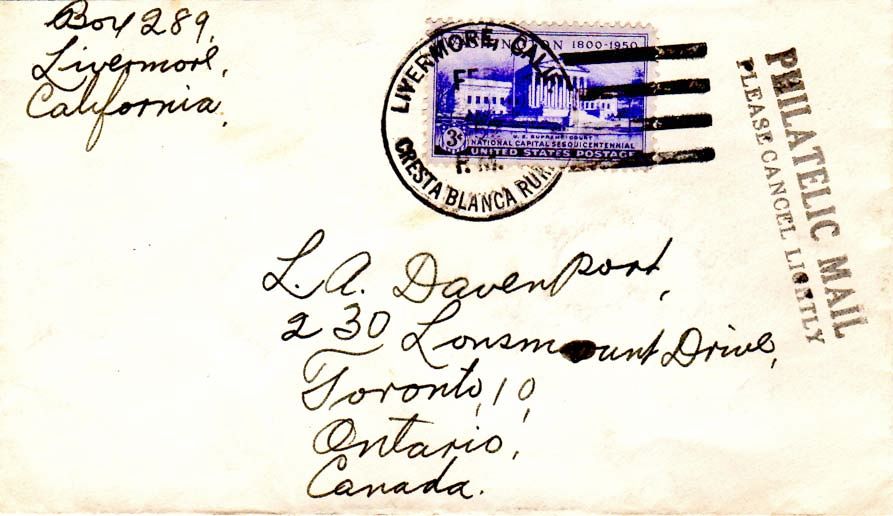 Box 289,
Livermore,
California,
LIVERMORE, CALIF.
FE
P.M.
CRESTA BLANCA RUR
1800-1950
3¢
U.S. SUPREME COURT
NATIONAL CAPITAL SESQUICENTENNIAL
UNITED STATES POSTAGE
PHILATELIC MAIL
PLEASE CANCEL LIGHTLY
L. A. Davenport,
230 Lonsmount Drive,
Toronto, 10,
Ontario,
Canada.